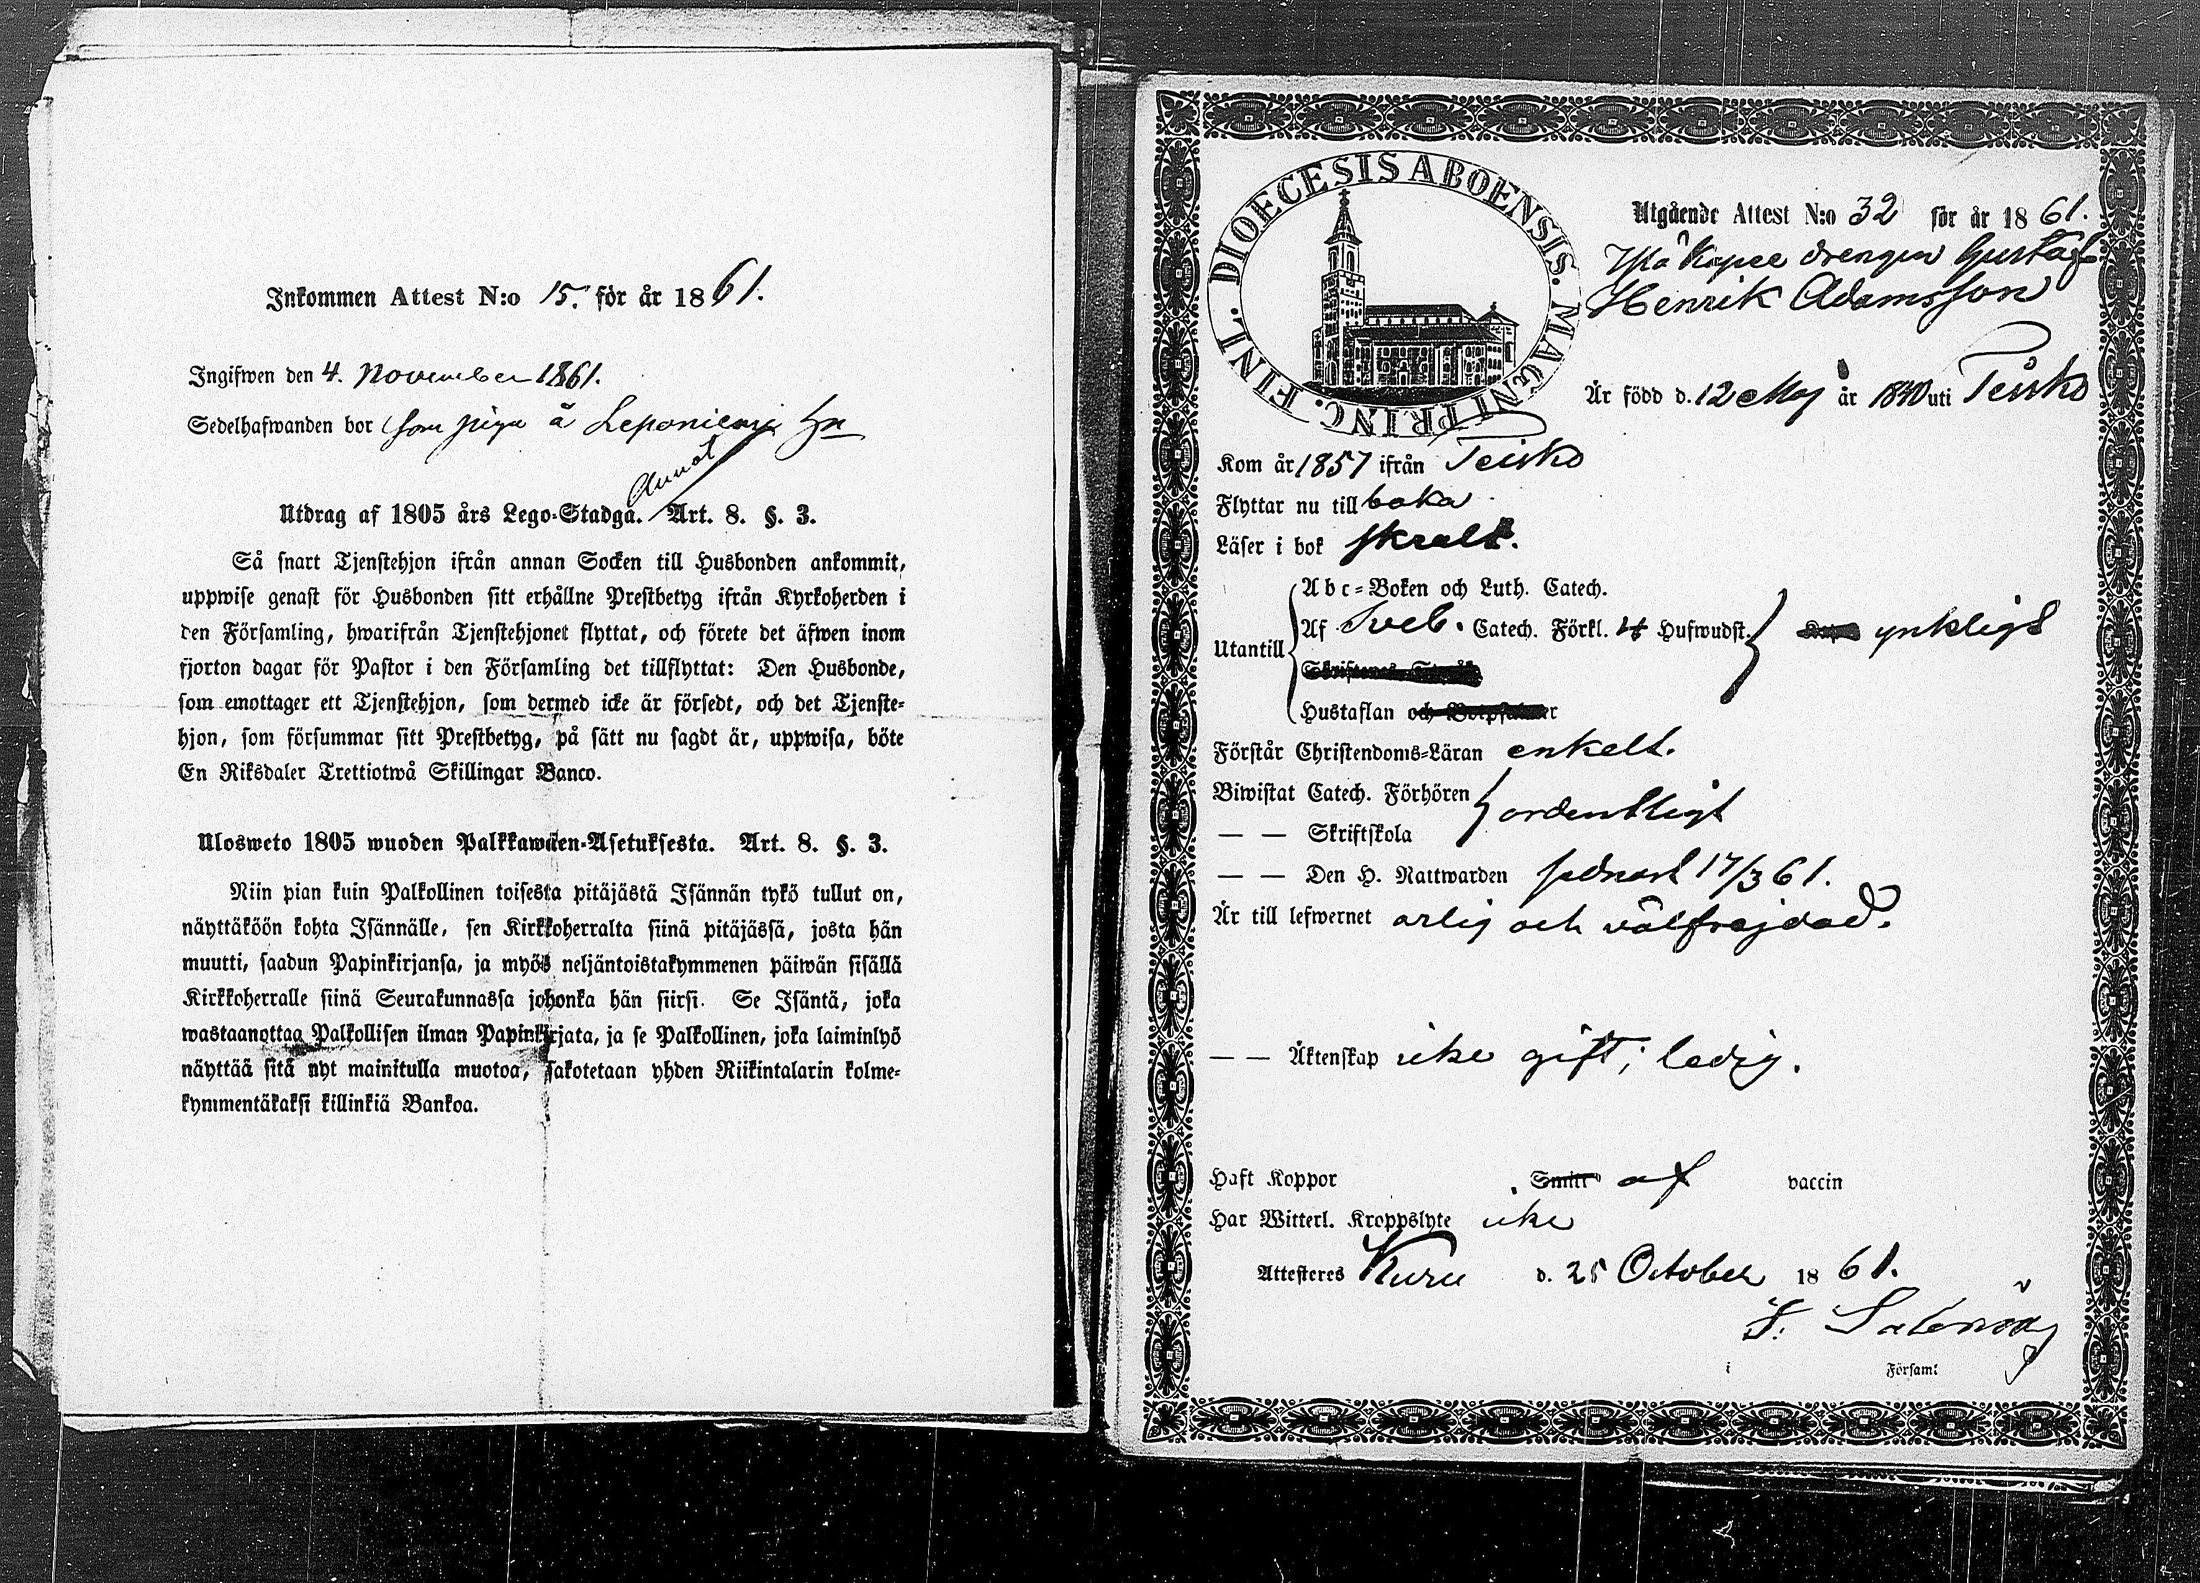 Inkommen Attest N:o 15. för år 1861.
Ingifwen den 4. November 1861.
Sedelhafwanden bor som piga å Leponiemi Hn
Annot
Utdrag af 1805 års Lego-Stadga. Art. 8. §. 3.
Så snart Tjenstehjon ifrån annan Socken till Husbonden ankommit,
uppwise genast för Husbonden sitt erhållne Prestbetyg ifrån Kyrkoherden i
den Församling, hwarifrån Tjenstehjonet flyttat, och förete det äfwen inom
fjorton dagar för Pastor i den Församling det tillflyttat: Den Husbonde,
som emottager ett Tjenstehjon, som dermed icke är försedt, och det Tjenste-
hjon, som försummar sitt Prestbetyg, på sätt nu sagdt är, uppwisa, böte
En Riksdaler Trettiotwå Skillingar Banco.
Ulosweto 1805 wuoden Palkkawäen-Asetuksesta. Art. 8. §. 3.
Niin pian kuin Palkollinen toisesta pitäjästä Isännän tykö tullut on,
näyttäköön kohta Isännälle, sen Kirkkoherralta siinä pitäjässä, josta hän
muutti, saadun Papinkirjansa, ja myös neljäntoistakymmenen päiwän sisällä
Kirkkoherralle siinä Seurakunnassa johonka hän siirsi. Se Isäntä, joka
wastaanottaa Palkollisen ilman Papinkirjata, ja se Palkollinen, joka laiminlyö
näyttää sitä nyt mainitulla muotoa, sakotetaan yhden Riikintalarin kolme-
kymmentäkaksi killinkiä Bankoa.
DIOECESIS ABOENSIS. MAGNI PRINC. FINL.
Utgående Attest N:o 32 för år 1861.
drengen Gustaf
Henrik Adamsson
Är född d. 12 Maj år 1840 uti Teisko
Kom år 1857 ifrån Teisko
Flyttar nu till
Läser i bok skralt.
Abc-Boken och Luth. Catech.
Utantill Af Sveb. Catech. Förkl. 4 Hufwudst. ynkligt
Hustaflan och Botpsalmer
Förstår Christendoms-Läran enkelt.
Biwistat Catech. Förhören ordentligt
— — Skriftskola
— — Den H. Nattwarden sednast 17/3 61.
Är till lefwernet ärlig och välfrejdad.
— — Äktenskap icke gift; ledig.
Haft Koppor Smitt af vaccin
Har Witterl. Kroppslyte icke
Attesteres Kuru d. 25 October 1861.
i Församl